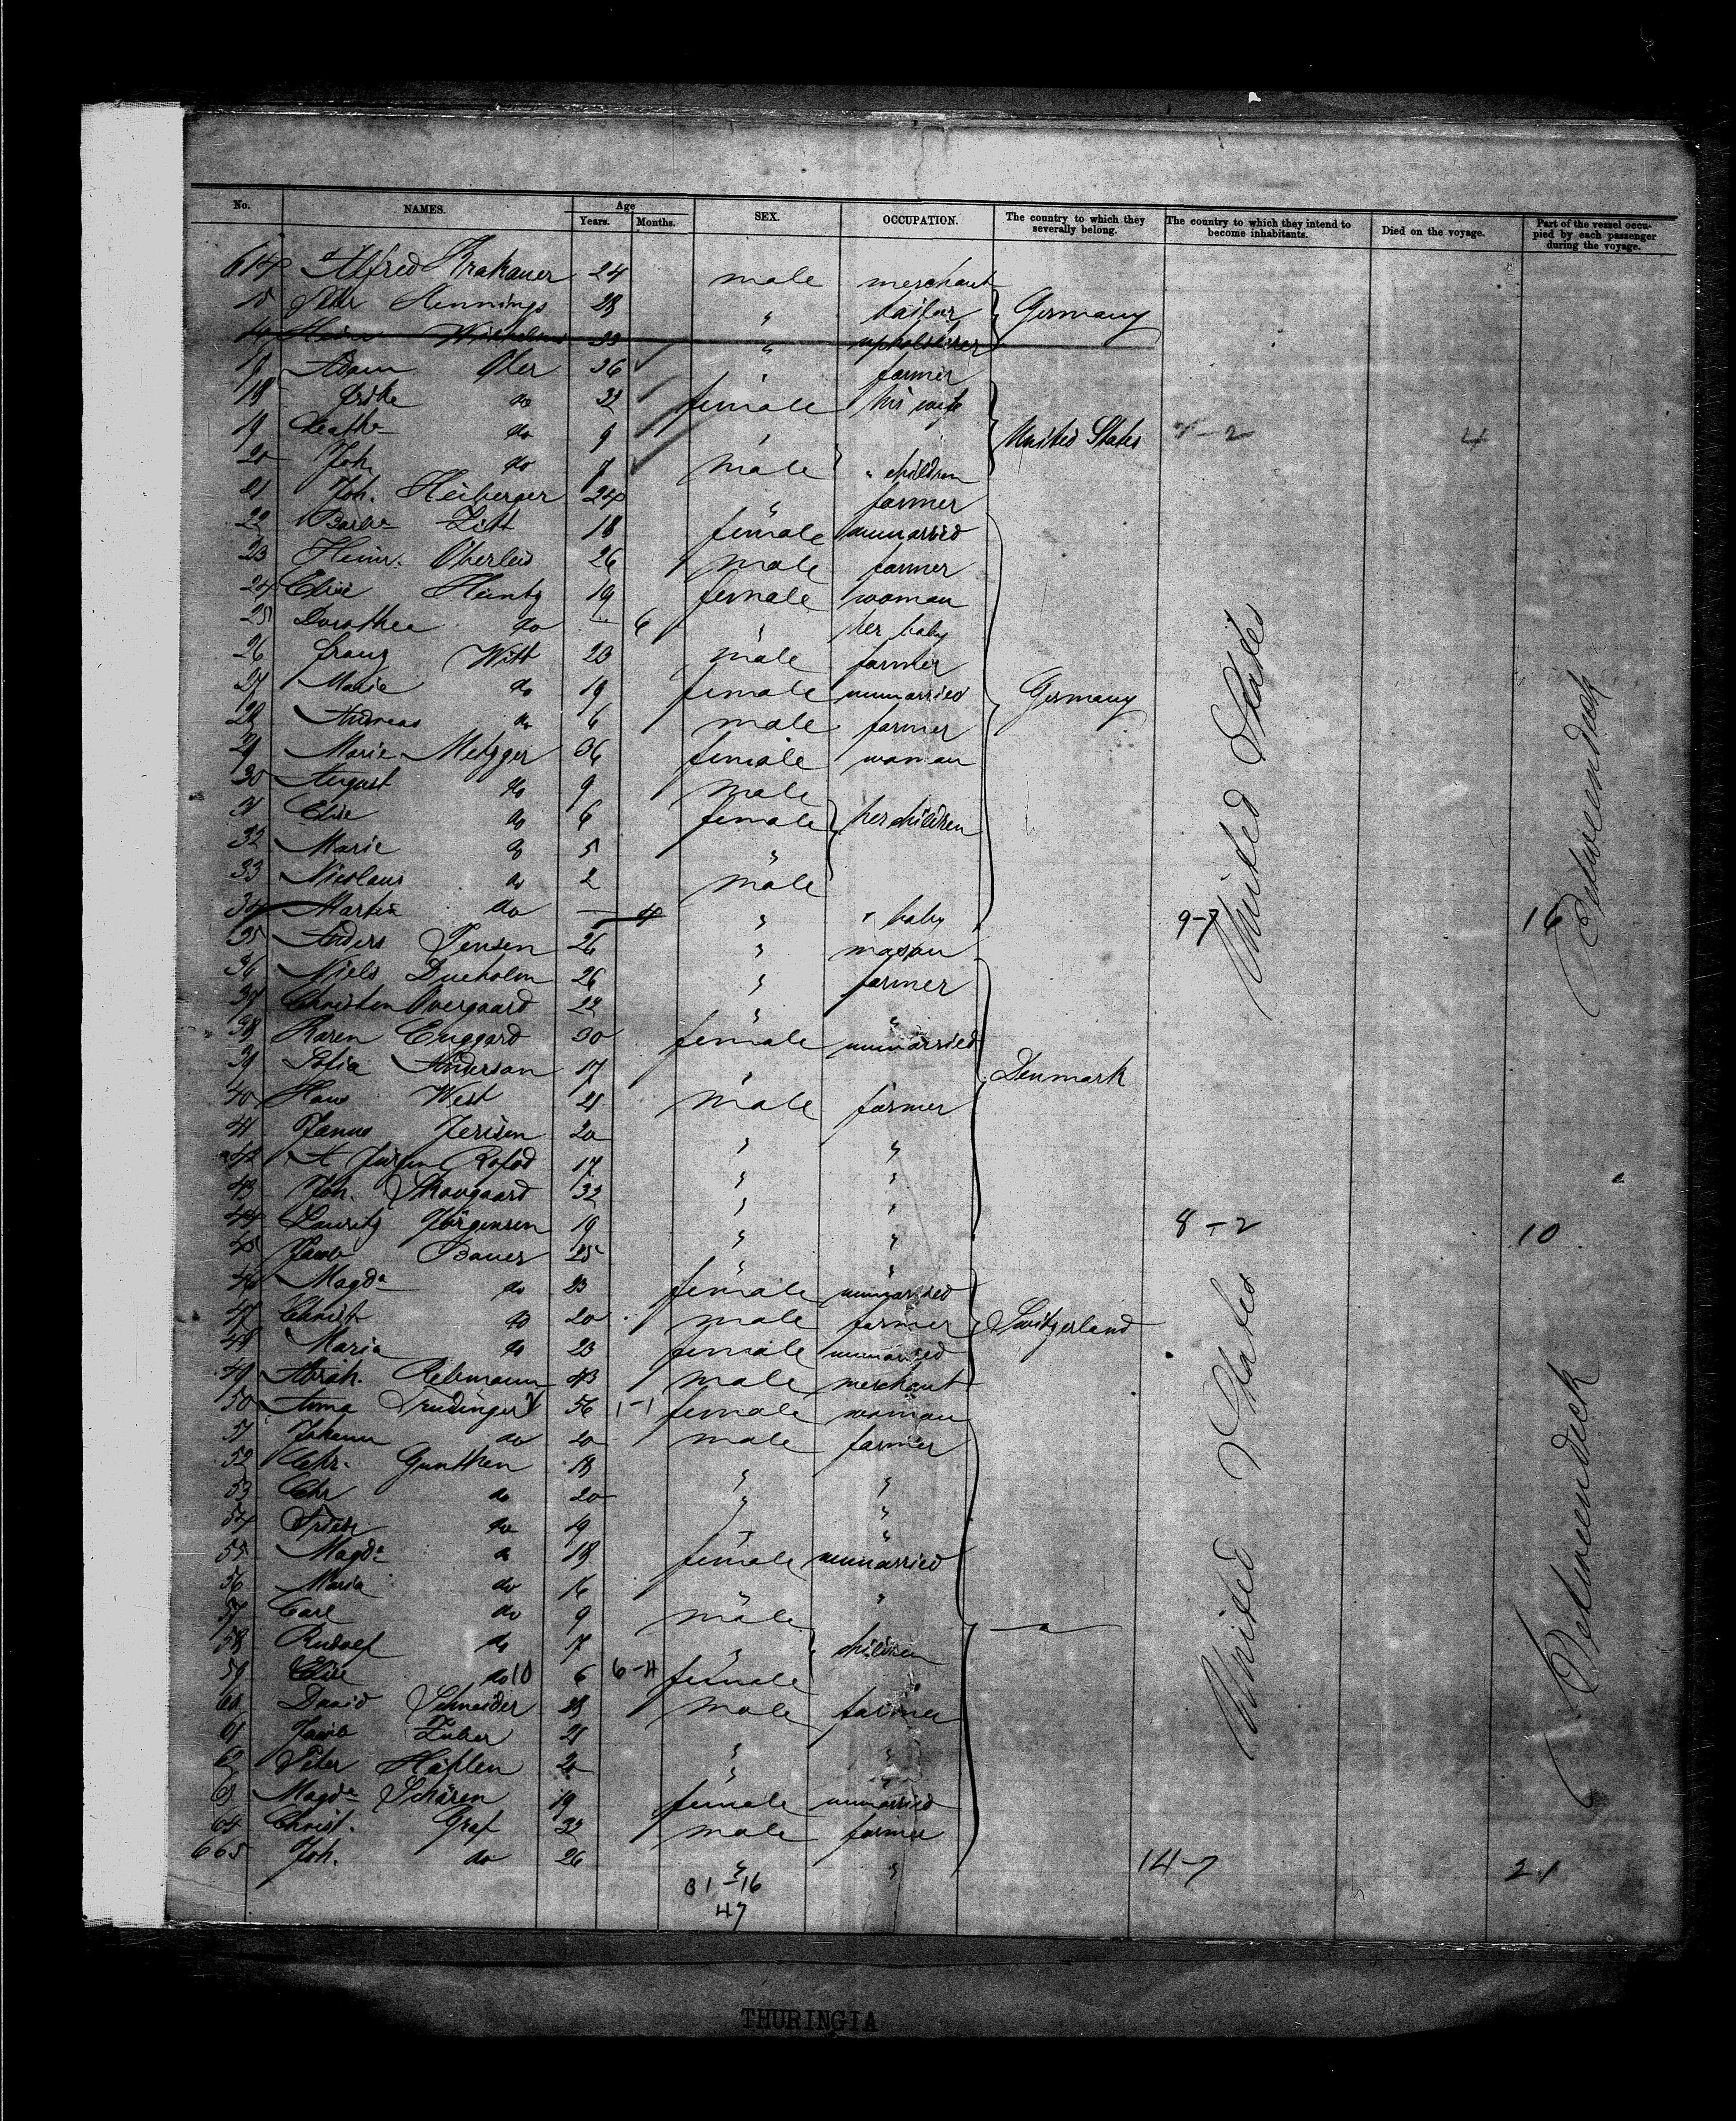 No. NAMES. Age Years. Months. SEX. OCCUPATION. The country to which they severally belong. The country to which they intend to become inhabitants. Died on the voyage. Part of the vessel occupied by each passenger during the voyage.
614 Alfred Krakauer 24 male merchant
15 Peter Hennings 28 " tailor Germany
16 " upholsterer
17 Adam Oler 36 " farmer
18 do 32 female his wife
19 Kath. do 9 " United States 2-2 4
20 Joh. do 7 male " children
21 Joh. Heiberger 24 " farmer
22 Barba Zitt 18 female unmarried
23 Heinr. Oberleid 26 male farmer
24 Elise Heintz 19 female woman
25 Dorothea do - 6 " her baby
26 Franz Witt 23 male farmer
27 Marie do 19 female unmarried Germany
28 Andreas do 6 male farmer
29 Marie Metzger 36 female woman
30 August do 9 male
31 Elise do 6 female her children
32 Marie do 5 "
33 Nicolaus do 2 male
34 Martin do - 4 " " baby 9-7 16
35 Anders Jensen 26 " mason
36 Niels Dueholm 26 " farmer
37 Christen Overgaard 22 " "
38 Karen Enggard 30 female unmarried
39 Sofia Anderson 17 " Denmark
40 Hans West 21 male farmer
41 Janus Jensen 20 " "
42 A Jürgen Rofod 17 " "
43 Joh. Skovgaard 32 " "
44 Lauritz Jörgensen 19 " " 8-2 10
45 Jacob Bauer 25 " "
46 Magda do 23 female unmarried
47 Christ do 20 male farmer Switzerland
48 Maria do 23 female unmarried
49 Abrah. Rebmann 43 male merchant
50 Anna Trudinger 56 1-1 female woman
51 Johann do 20 male farmer
52 Chr. Gunthen 18 " "
53 Chr do 20 " "
54 Friedr. do 19 " "
55 Magda do 18 female unmarried
56 Maria do 16 " "
57 Carl do 9 male
58 Rudolf do 7 " children
59 Elise do 10 6 6-4 female
60 David Schneider 28 male farmer
61 Jacob Zuber 21 " "
62 Peter Häflen 20 " "
63 Magda Schären 19 female unmarried
64 Christ. Graf 32 male farmer
665 Joh. do 26 " " 14-7 21
31-16
47
United States
United States
Betweendeck
Betweendeck
THURINGIA